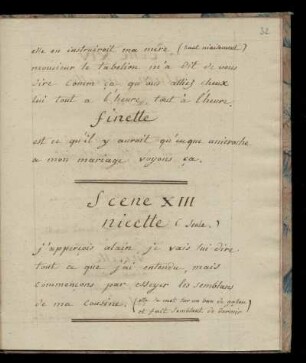 32
elle en instruiroit ma mère (haut niaisement)
monsieur le tabelion m'a dit de vous
dire comm ça qu'ous alliés cheux
lui tout a l'heure, tout à l'heure.
finette
est ce qu'il y auroit quelque anicroche
a mon mariage voyons ça.
Scene XIII
nicette (seule.)
j'apperçois alain je vais lui dire
tout ce que j'ai entendu, mais
commençons par essayer les semblans
de ma cousine. (elle se met sur un banc de gazon
et fait semblant de dormir